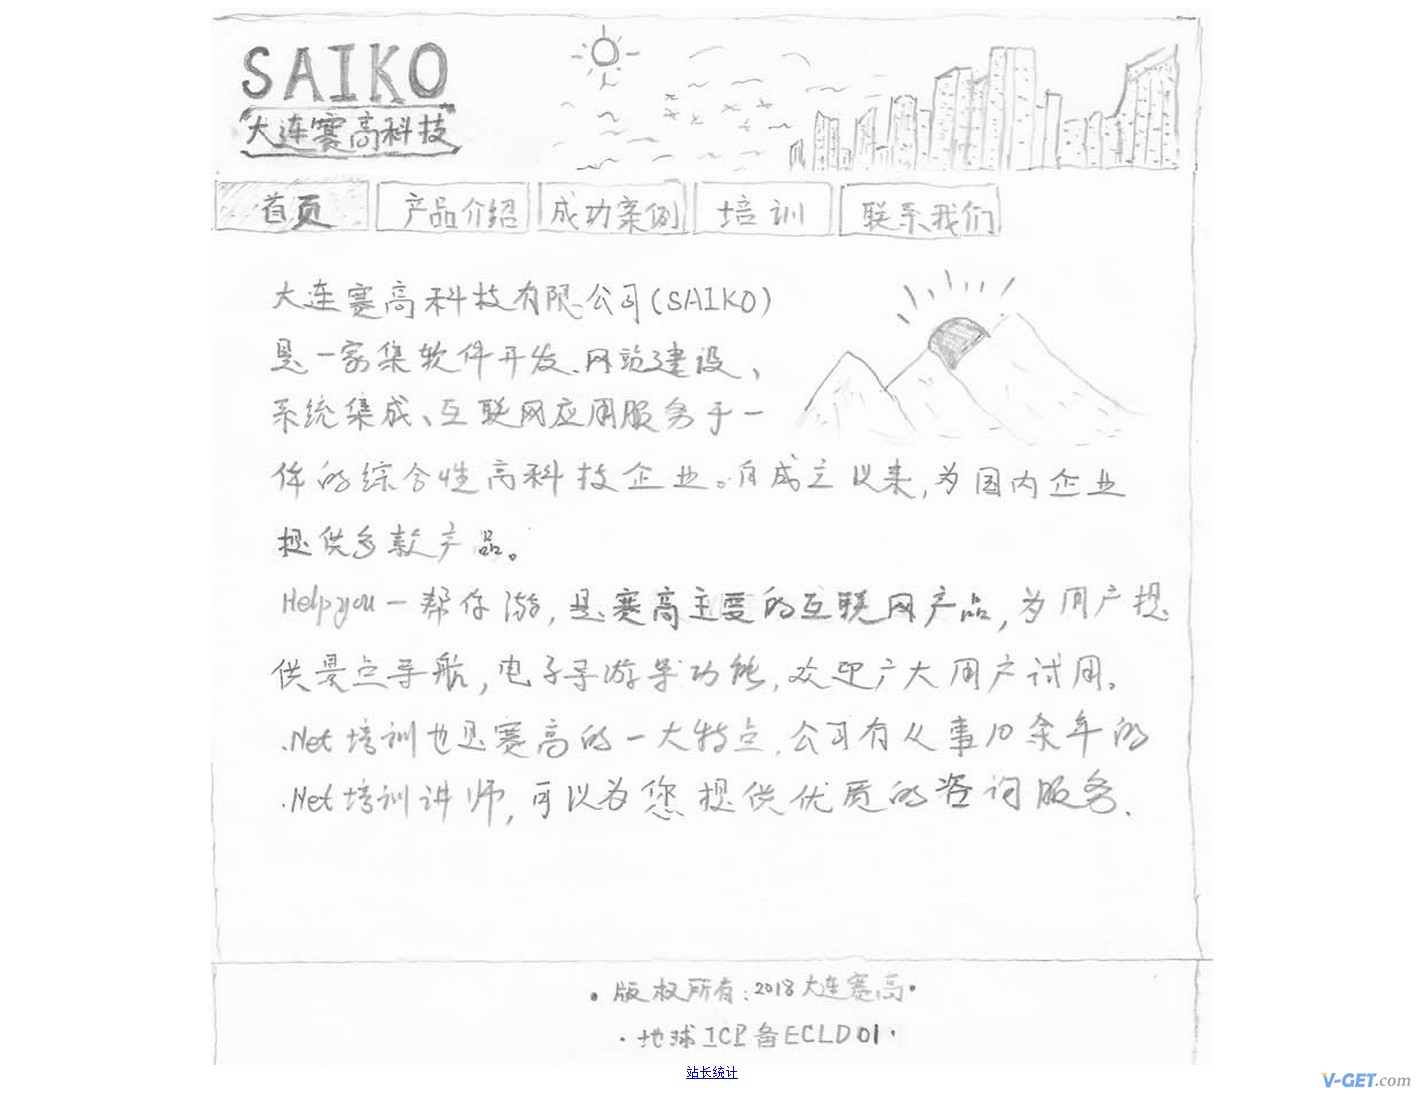 SAIKO
大连赛高科技
首页 产品介绍 成功案例 培训 联系我们
大连赛高科技有限公司(SAIKO)
是一家集软件开发、网站建设、
系统集成、互联网应用服务于一
体的综合性高科技企业。自成立以来,为国内企业
提供多款产品。
Helpyou一帮你游,是赛高主要的互联网产品,为用户提
供景点导航,电子导游等功能,欢迎广大用户试用。
.Net培训也是赛高的一大特点,公司有从事10余年的
.Net培训讲师,可以为您提供优质的咨询服务.
·版权所有:2018大连赛高·
·地球ICP备ECLD01·
站长统计
V-GET.com